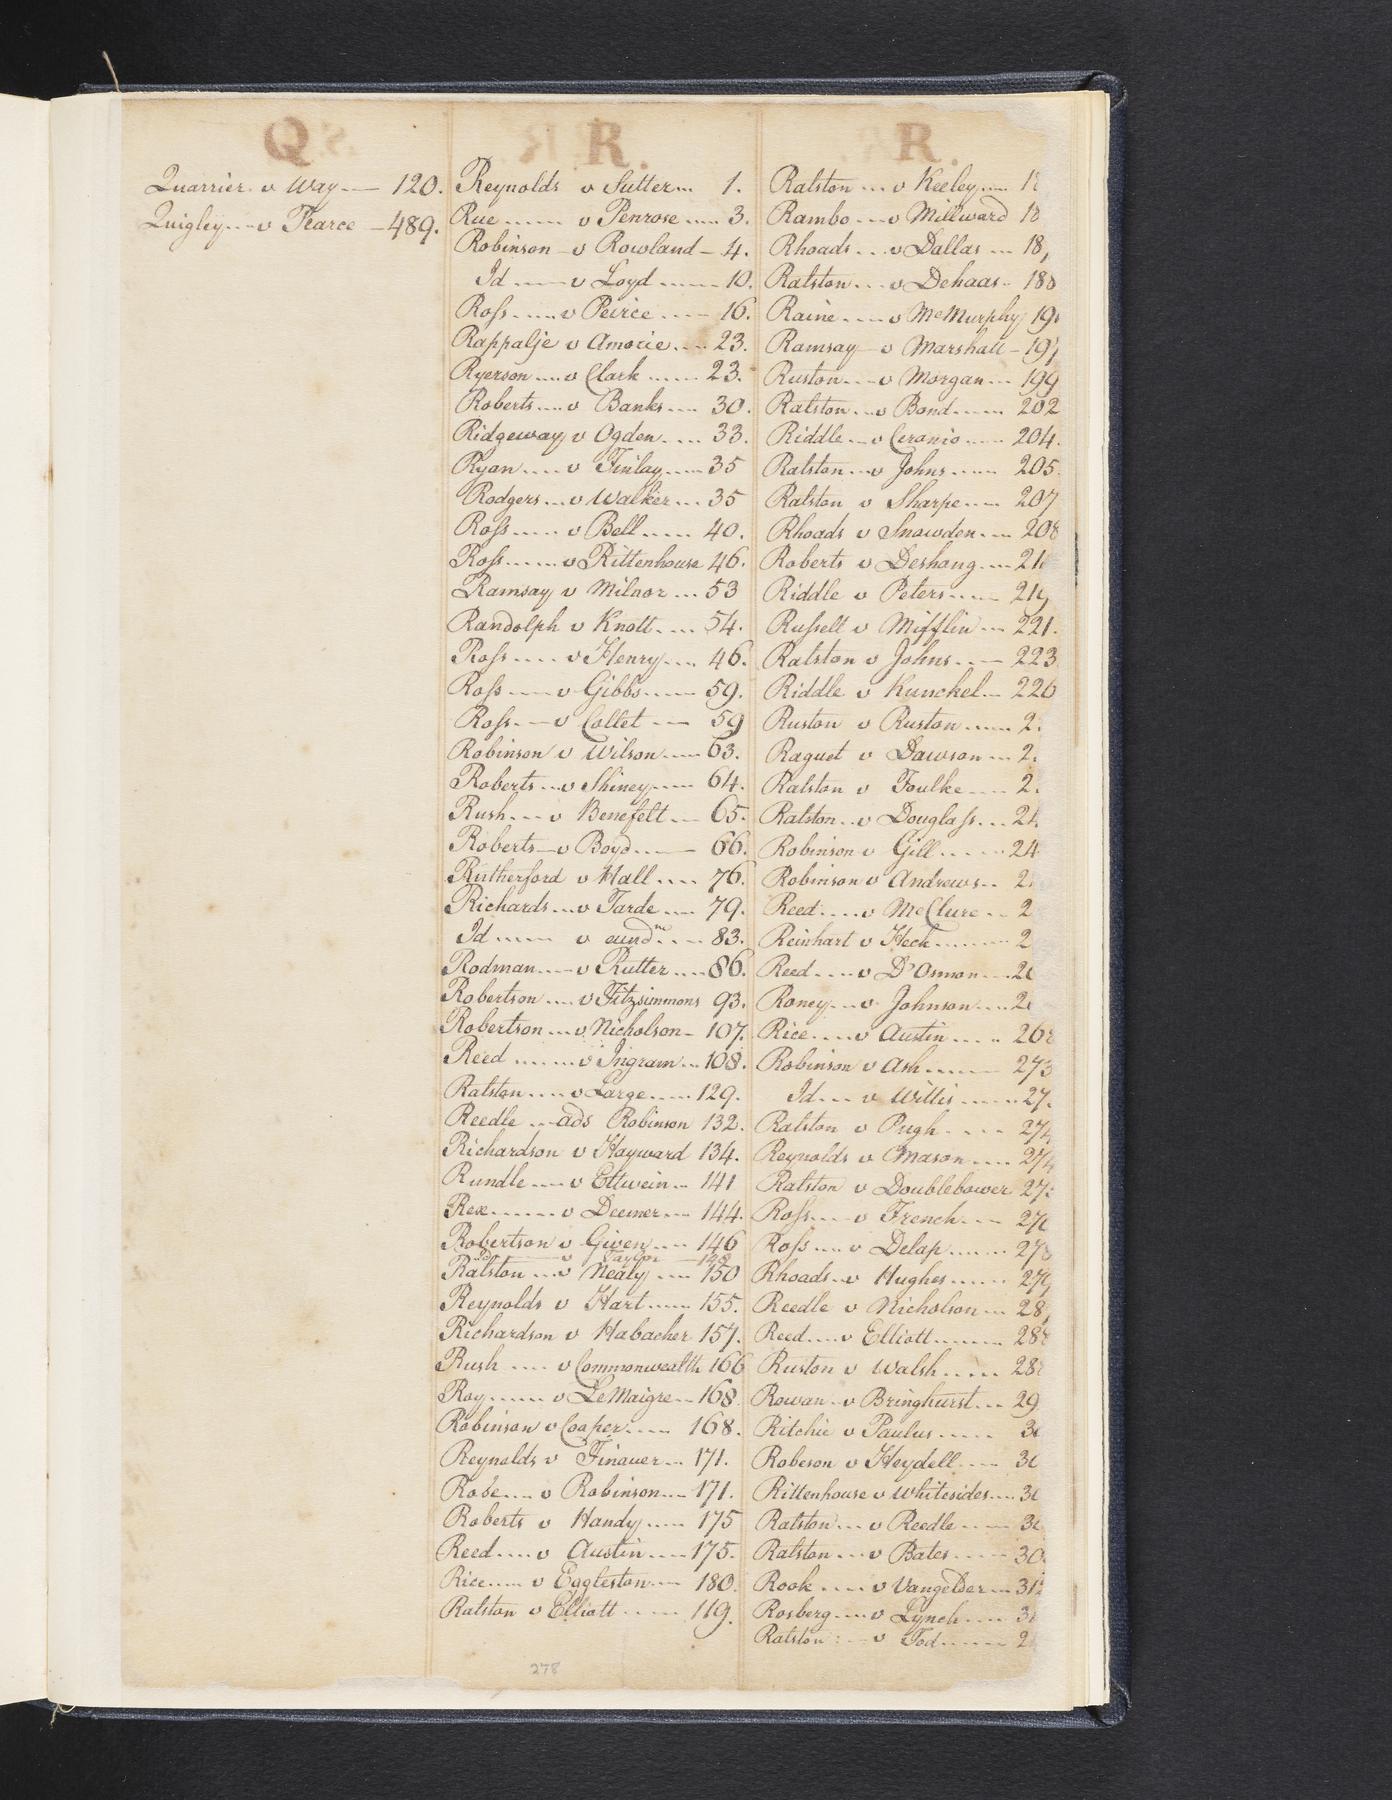 Q.
Quarrier v Way 120.
Quigley v Pearce 489.
R.
Reynolds v Sutter 1.
Rue v Penrose 3.
Robinson v Rowland 4.
Id v Loyd 10.
Roſs v Peirce 16.
Rappalje v Amorie 23.
Ryerson v Clark 23.
Roberts v Banks 30.
Ridgeway v Ogden 33.
Ryan v Finlay 35
Rodgers v Walker 35
Roſs v Bell 40.
Roſs v Rittenhouse 46.
Ramsay v Milnor 53
Randolph v Knott 54.
Roſs v Henry 46.
Roſs v Gibbs 59.
Roſs v Collet 59
Robinson v Wilson 63.
Roberts v Shiney 64.
Rush v Benefelt 65.
Roberts v Boyd 66.
Rutherford v Hall 76.
Richards v Tarde 79.
Id v eundm 83.
Rodman v Rutter 86.
Robertson v Fitzsimmons 93.
Robertson v Nicholson 107.
Reed v Ingram 108.
Ralston v Large 129.
Reedle ads Robinson 132.
Richardson v Hayward 134.
Rundle v Ettwein 141
Rex v Deemer 144.
Robertson v Given 146
Id v Taylor 148
Ralston v Nealy 150
Reynolds v Hart 155.
Richardson v Habacher 157.
Rush v Commonwealth 166
Roy v LeMaigre 168
Robinson v Cooper 168.
Reynolds v Finauer 171.
Rose v Robinson 171.
Roberts v Handy 175
Reed v Austin 175.
Rice v Eggleston 180.
Ralston v Elliott 119.
278
R.
Ralston v Keeley 18
Rambo v Millward 18
Rhoads v Dallas 18
Ralston v Dehaas 188
Raine v McMurphy 19
Ramsay v Marshall 197
Ruston v Morgan 199
Ralston v Bond 202
Riddle v Ceronio 204.
Ralston v Johns 205
Ralston v Sharpe 207
Rhoads v Snowden 208
Roberts v Deshong 21
Riddle v Peters 219
Ruſsell v Mifflin 221.
Ralston v Johns 223
Riddle v Kunckel 226
Ruston v Ruston 2
Raguet v Dawson 2
Ralston v Foulke 2
Ralston v Douglaſs 24
Robinson v Gill 24
Robinson v Andrews 2
Reed v McClure 2
Reinhart v Heck 2
Reed v D'Osmon 26
Roney v Johnson 2
Rice v Austin 268
Robinson v Ash 273
Id v Willis 27
Ralston v Pugh 274
Reynolds v Mason 274
Ralston v Doublebower 27
Roſs v French 276
Roſs v Delap 278
Rhoads v Hughes 279
Reedle v Nicholson 28
Reed v Elliott 288
Ruston v Walsh 288
Rowan v Bringhurst 29
Ritchie v Paulus 30
Robeson v Heydell 30
Rittenhouse v Whitesides 30
Ralston v Reedle 30
Ralston v Bates 30
Rook v Vangelder 312
Rosberg v Lynch 31
Ralston v Tod 2